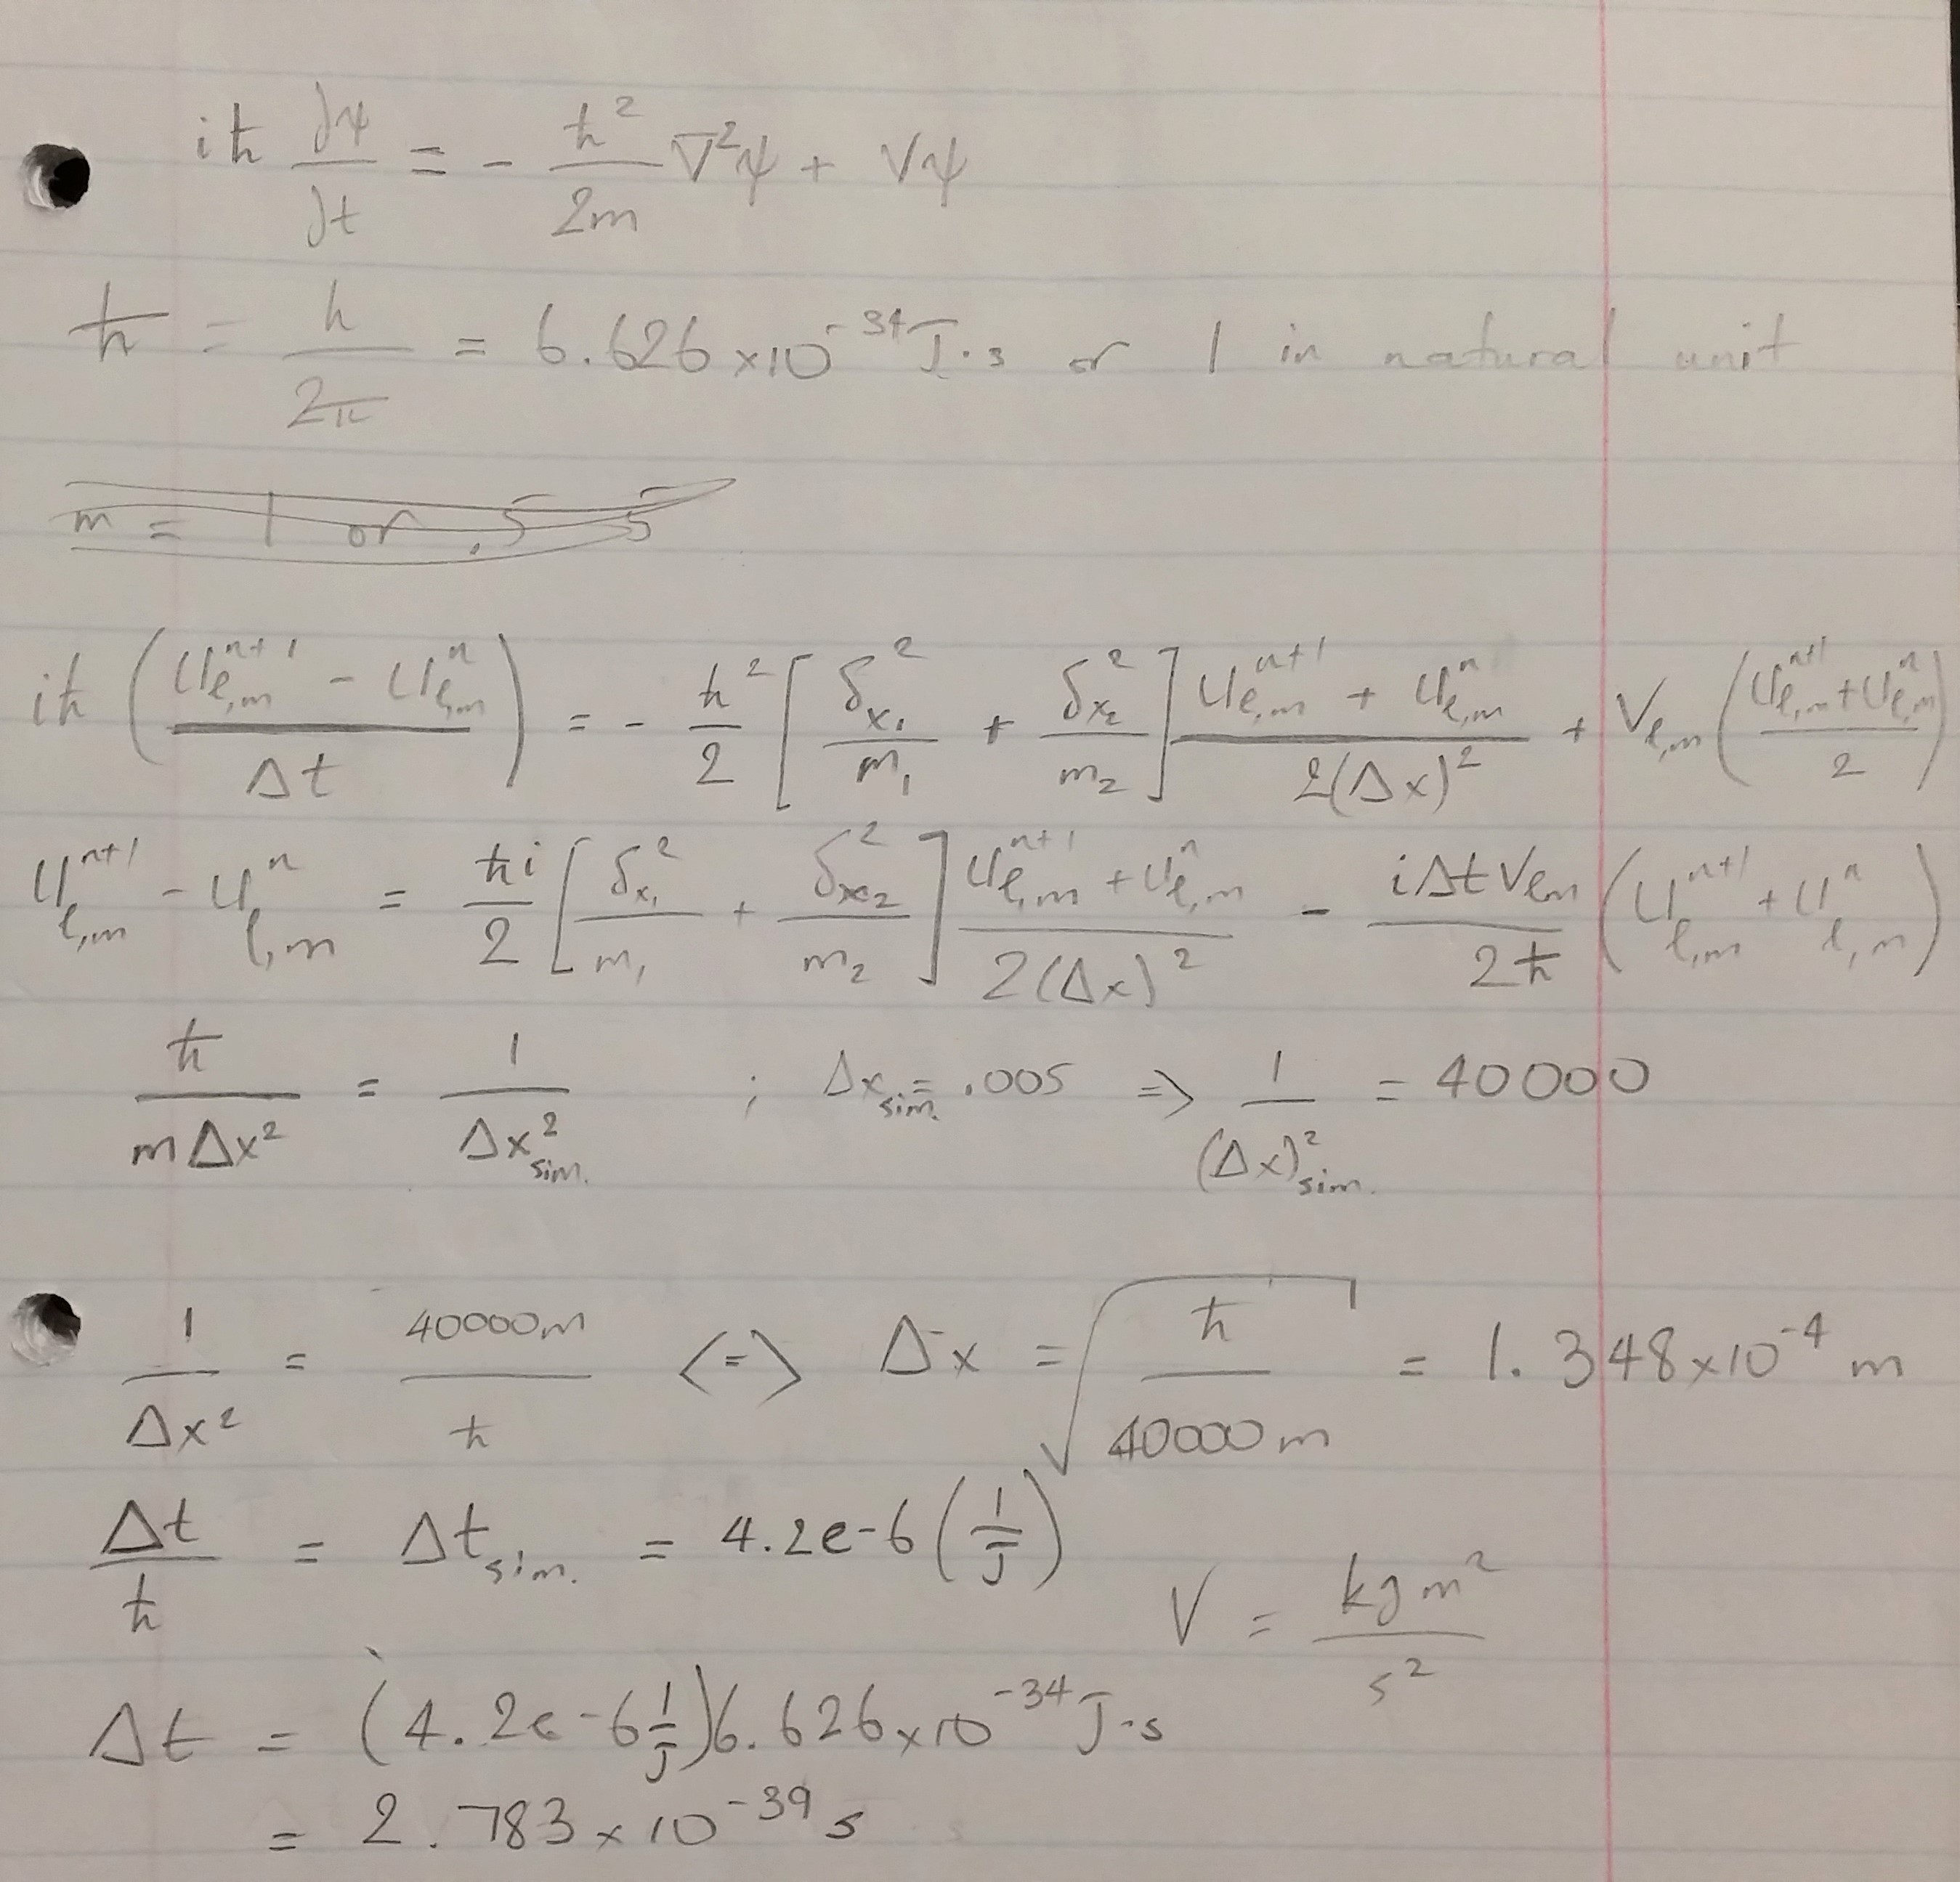 iħ ∂ψ/∂t = - ħ²/2m ∇²ψ + Vψ
ħ = h/2π = 6.626 x10⁻³⁴ J·s or 1 in natural unit
m = 1 or .5 5
iħ ( (U_{l,m}^{n+1} - U_{l,m}^{n}) / Δt ) = - ħ²/2 [ δ²_{x₁}/m₁ + δ²_{x₂}/m₂ ] (U_{l,m}^{n+1} + U_{l,m}^{n}) / 2(Δx)² + V_{l,m} ( (U_{l,m}^{n+1} + U_{l,m}^{n}) / 2 )
U_{l,m}^{n+1} - U_{l,m}^{n} = ħi/2 [ δ²_{x₁}/m₁ + δ²_{x₂}/m₂ ] (U_{l,m}^{n+1} + U_{l,m}^{n}) / 2(Δx)² - iΔtV_{lm}/2ħ ( U_{l,m}^{n+1} + U_{l,m}^{n} )
ħ/mΔx² = 1/Δx²_{sim.} ; Δx_{sim.} = .005 => 1/(Δx)²_{sim.} = 40000
1/Δx² = 40000m/ħ <=> Δx = √(ħ/40000m) = 1.348x10⁻⁴ m
Δt/ħ = Δt_{sim.} = 4.2e-6 (1/J)
V = kg m²/s²
Δt = (4.2e-6 1/J) 6.626x10⁻³⁴ J·s
= 2.783 x 10⁻³⁹ s